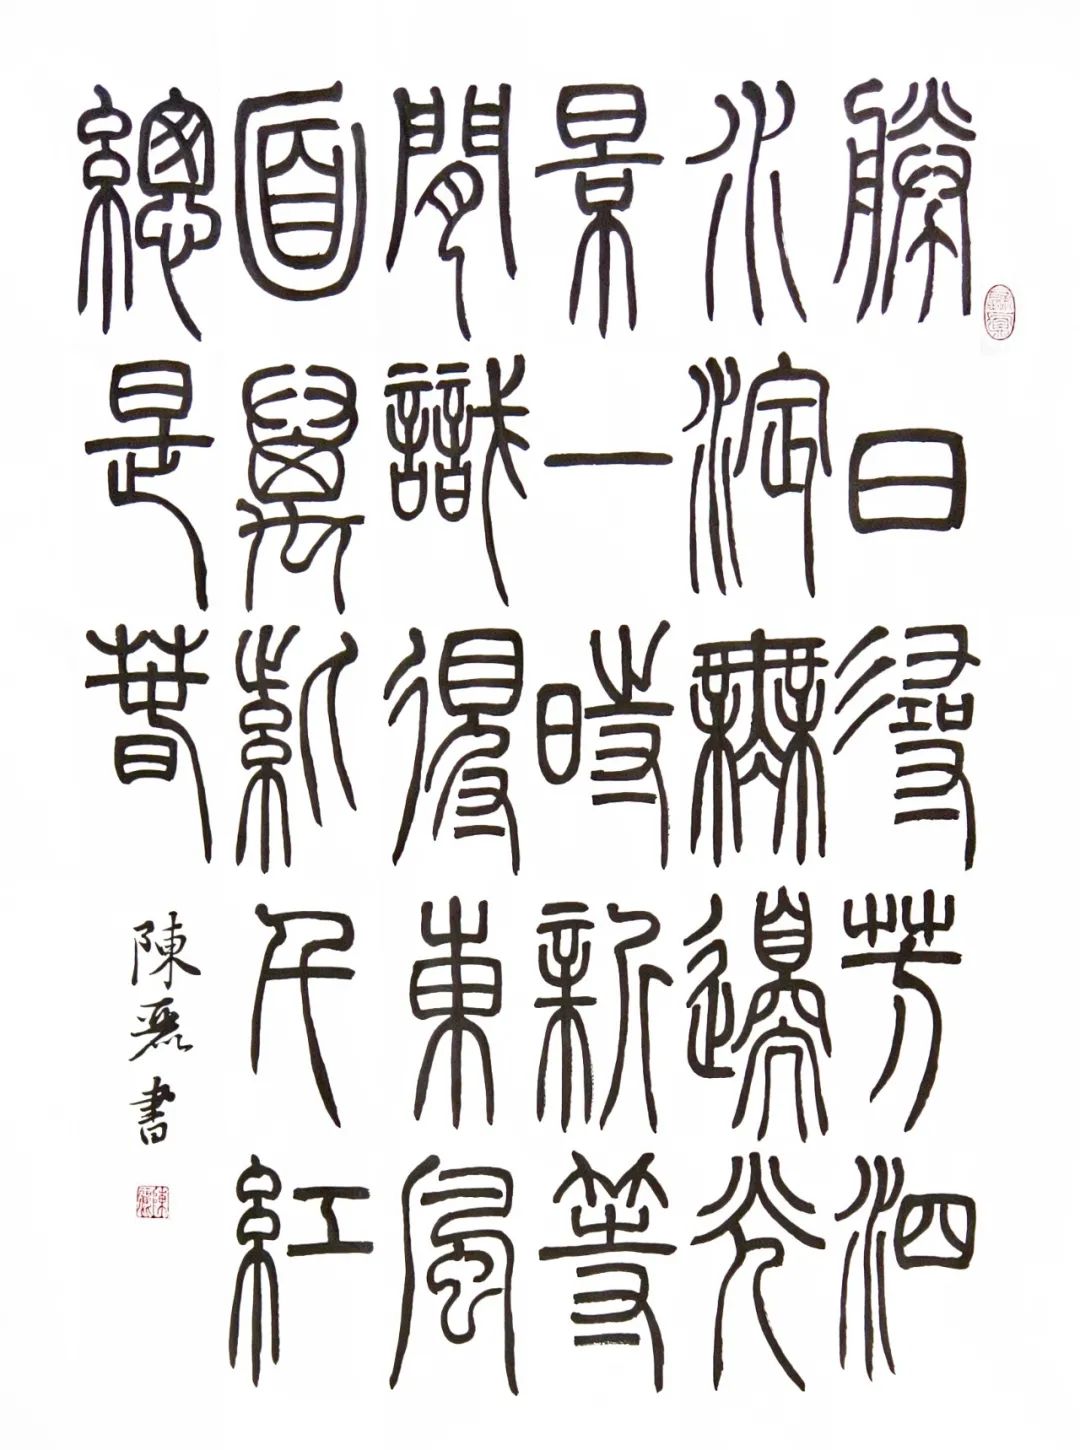 勝日尋芳泗
水濱無邊光
景一時新等
閒識得東風
面萬紫千紅
總是春
陳麗書